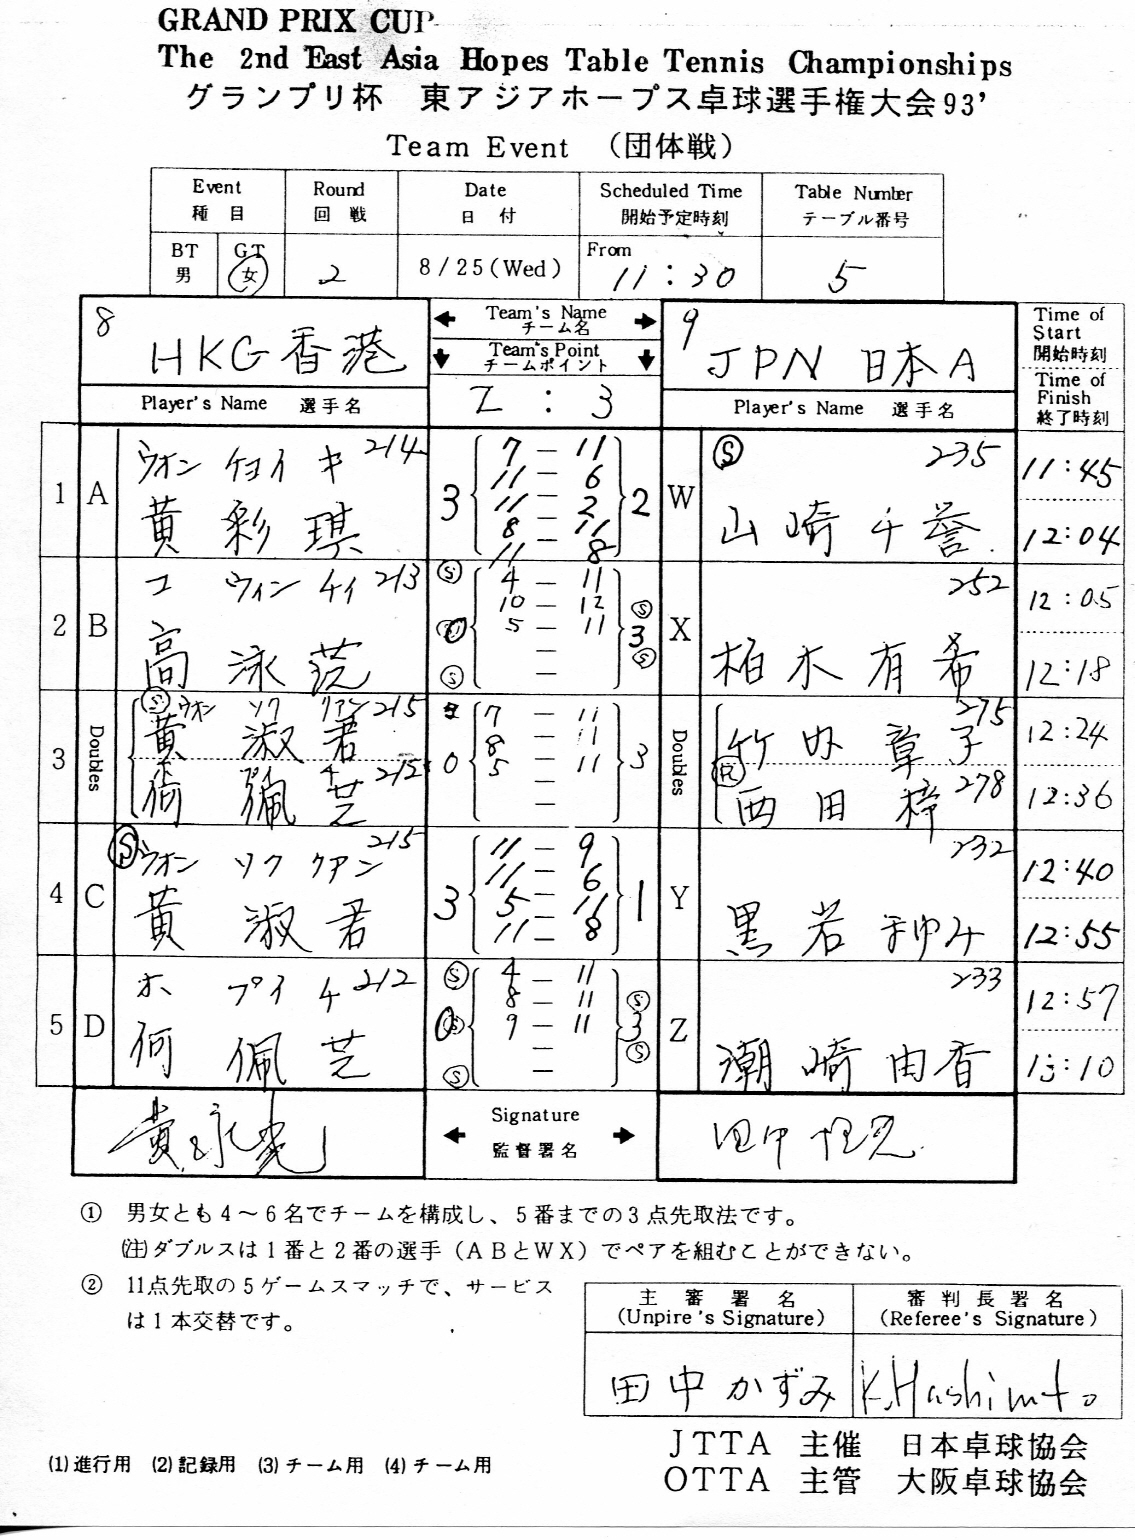 GRAND PRIX CUP
The 2nd East Asia Hopes Table Tennis Championships
グランプリ杯 東アジアホープス卓球選手権大会93'
Team Event (団体戦)
Event Round Date Scheduled Time Table Number
種目 回戦 日付 開始予定時刻 テーブル番号
BT GT From
男 女 2 8/25(Wed) 11:30 5
8 HKG 香港
Team's Name
チーム名
Team's Point
チームポイント
2 : 3
9 JPN 日本A
Time of Start
開始時刻
Time of Finish
終了時刻
Player's Name 選手名
Player's Name 選手名
1 A ウオン チヨイ キ 214
黄 彩 琪
3 7 — 11 2
11 — 6
11 — 2
8 — 11
11 — 8
W S 235
山崎千誉
11:45
12:04
2 B コ ウィン チイ 213
高 泳 莞
S 0 S
4 — 11
10 — 12
5 — 11
—
—
S 3 S
X 252
柏木有希
12:05
12:18
3 Doubles S ウオン ソク クアン 215
黄 淑 君
212
何 佩 芝
0 7 — 11 3
8 — 11
5 — 11
—
—
Doubles 275
竹内章子
R 278
西田梓
12:24
12:36
4 C S ウオン ソク クアン 215
黄 淑 君
3 11 — 9 1
11 — 6
5 — 11
11 — 8
Y 232
黒岩まゆみ
12:40
12:55
5 D ホ プイ チ 212
何 佩 芝
S 0 S
4 — 11
8 — 11
9 — 11
—
—
S 3 S
Z 233
潮崎由香
12:57
13:10
Signature
監督署名
① 男女とも4～6名でチームを構成し、5番までの3点先取法です。
(注)ダブルスは1番と2番の選手(ABとWX)でペアを組むことができない。
② 11点先取の5ゲームスマッチで、サービス
は1本交替です。
主審署名 審判長署名
(Unpire's Signature) (Referee's Signature)
田中かずみ K.Hashimoto
JTTA 主催 日本卓球協会
OTTA 主管 大阪卓球協会
(1)進行用 (2)記録用 (3)チーム用 (4)チーム用